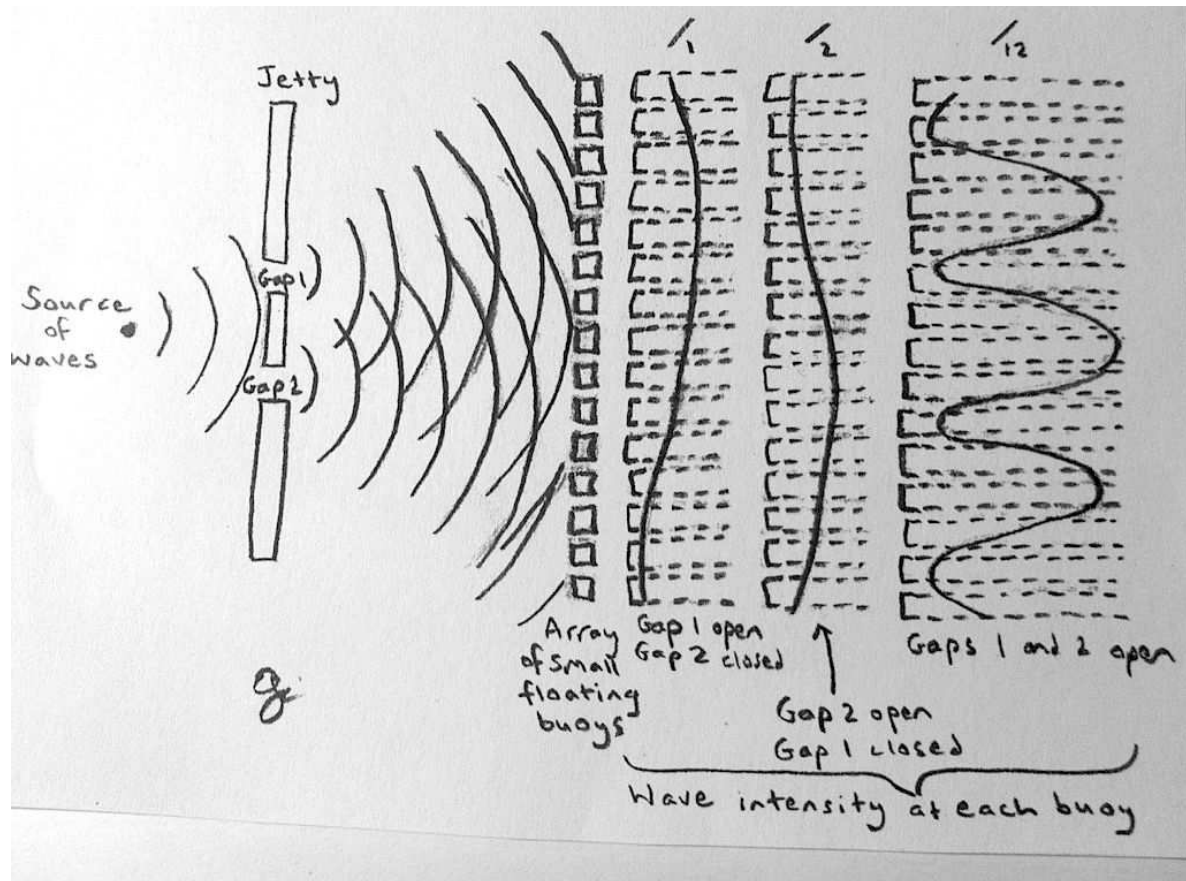 Jetty
I1
I2
I12
Gap 1
Source
of
waves
Gap 2
Array
of small
floating
buoys
Gap 1 open
Gap 2 closed
Gap 2 open
Gap 1 closed
Gaps 1 and 2 open
Wave intensity at each buoy